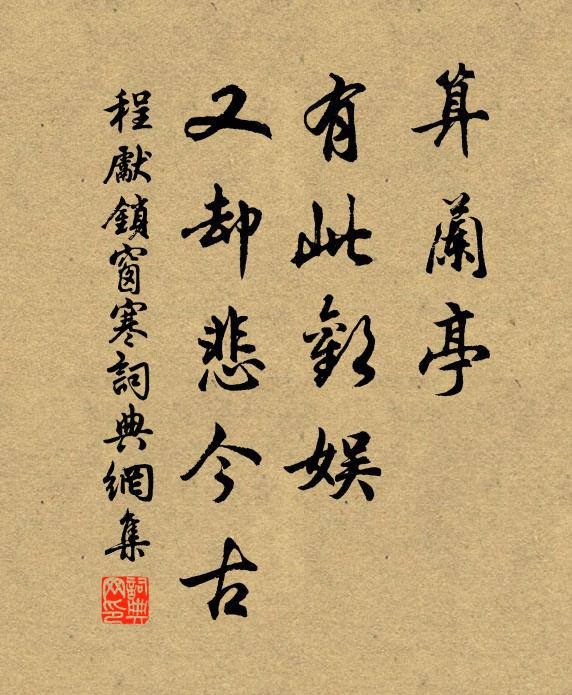 算蘭亭
有此歡娛
又却悲今古
程獻鎖窗寒詞典網集
詞典网印